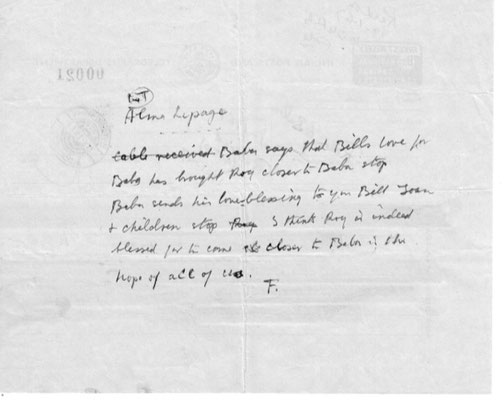 LT
Alma Lepage
cable received Baba says that Bills love for
Baba has brought Roy closer to Baba stop
Baba sends his love blessing to you Bill Joan
+ children stop I think Roy is indeed
blessed for to come closer to Baba is the
hope of all of us.
F.
00021